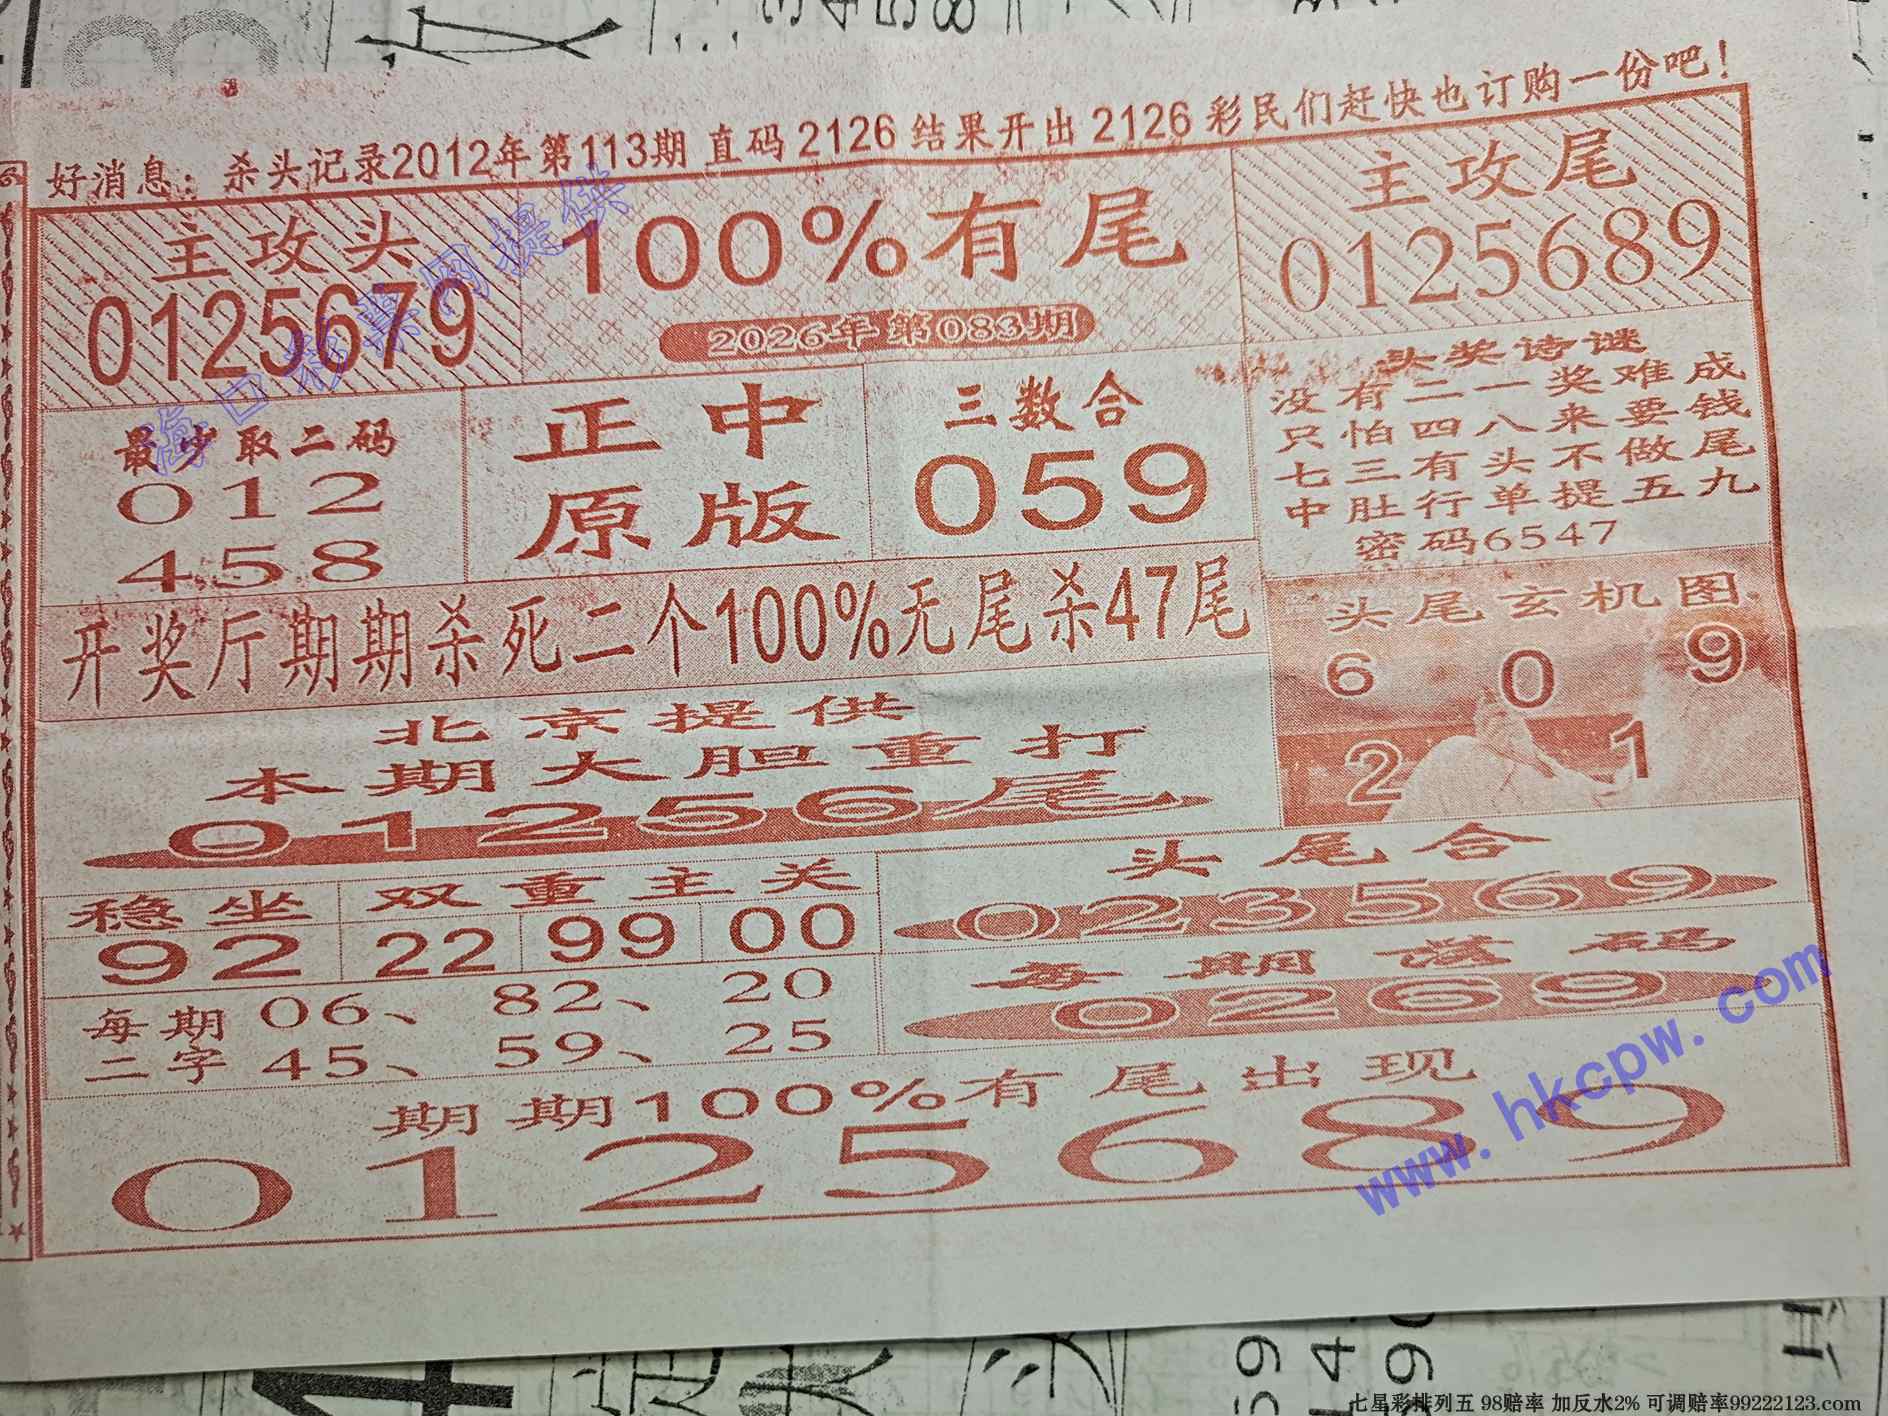 好消息：杀头记录2012年第113期 直码 2126 结果开出 2126 彩民们赶快也订购一份吧！
主攻头
0125679
100%有尾
2026年第083期
主攻尾
0125689
最少取二码
012
458
正中
原版
三数合
059
头奖诗谜
没有二一奖难成
只怕四八来要钱
七三有头不做尾
中肚行单提五九
密码6547
开奖厅期期杀死二个100%无尾杀47尾
头尾玄机图
6 0 9
2 1
北京提供
本期大胆重打
01256尾
稳坐
92
双重主关
22 99 00
头尾合
023569
每期落码
0269
每期 06、 82、 20
二字 45、 59、 25
期期100%有尾出现
0125689
海口彩票网提供
www.hkcpw.com
七星彩排列五 98赔率 加反水2% 可调赔率99222123.com